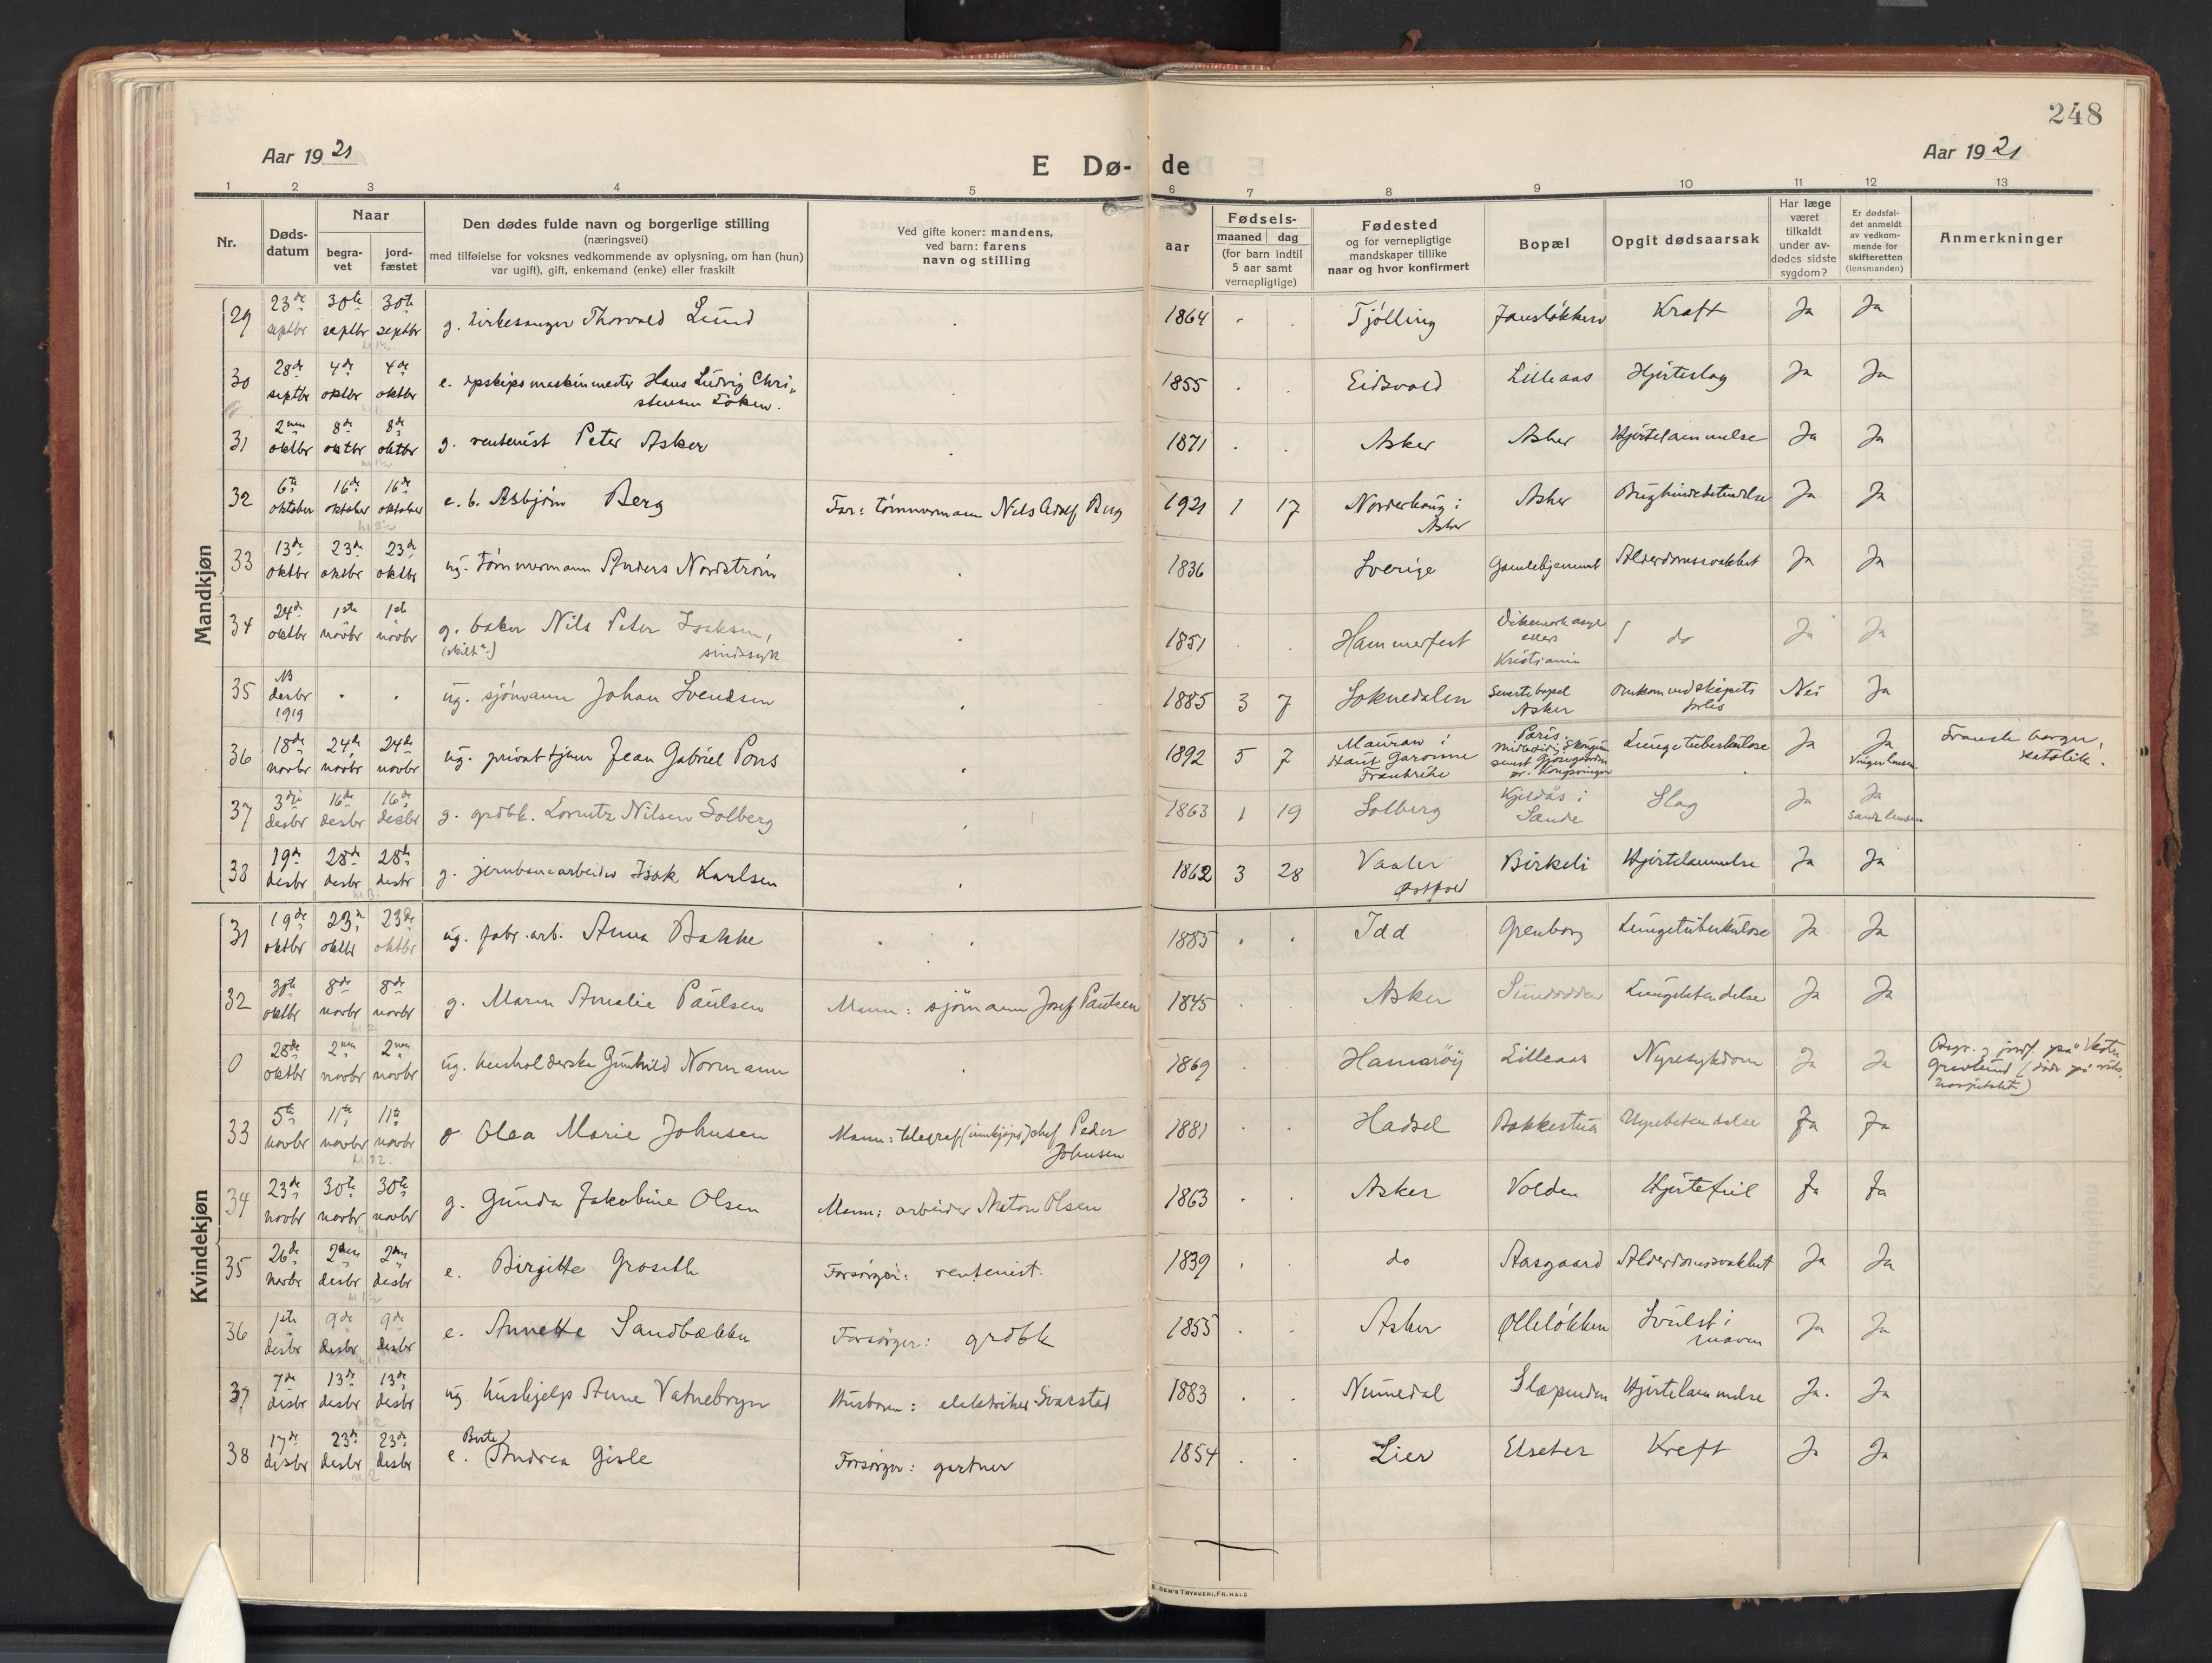 248
Aar 1921
E Dø- de
Aar 1921
1 2 3 4 5 6 7 8 9 10 11 12 13
Nr.
Døds-
datum
Naar
begra-
vet
jord-
fæstet
Den dødes fulde navn og borgerlige stilling
(næringsvei)
med tilføielse for voksnes vedkommende av oplysning, om han (hun)
var ugift), gift, enkemand (enke) eller fraskilt
Ved gifte koner: mandens,
ved barn: farens
navn og stilling
aar
Fødsels-
maaned dag
(for barn indtil
5 aar samt
vernepligtige)
Fødested
og for vernepligtige
mandskaper tillike
naar og hvor konfirmert
Bopæl
Opgit dødsaarsak
Har læge
været
tilkaldt
under av-
dødes sidste
sygdom?
Er dødsfal-
det anmeldt
av vedkom-
mende for
skifteretten
(lensmanden)
Anmerkninger
Mandkjøn
29 23de septbr 30te septbr 30te septbr g. kirkesanger Thorvald Lund 1864 Tjølling Jansløkken Kraft Ja Ja
30 28de septbr 4de oktbr 4de oktbr e. dpskipsmaskinmester Hans Ludvig Chri-
stensen Løken. 1855 Eidsvold Lilleaas Hjerteslag Ja Ja
31 2nen oktbr 8de oktbr 8de oktbr g. rentenist Peter Asker 1871 Asker Asker Hjertelammelse Ja Ja
32 6te oktober 16de oktober 16de oktober e. b. Asbjørn Berg Far: tømmermann Nils Adolf Berg 1921 1 17 Norderhaug i
Asker Asker Brysthindebetendelse Ja Ja
33 13de oktbr 23de oktbr 23de oktbr ug. tømmermann Anders Nordstrøm 1836 Sverige Gamlehjemmet Alderdomssvakhet Ja Ja
34 24de oktbr 1ste novbr 1ste novbr g. baker Nils Peter Isaksen,
(skilt) sindssyk 1851 Hammerfest Dikemark asyl
ellers
Kristiania do Ja Ja
35 NB
desbr
1919 ug. sjømann Johan Svendsen 1885 3 7 Soknedalen Seneste bopel
Asker Omkom ved skipets
forlis Nei Ja
36 18de novbr 24de novbr 24de novbr ug. privattjener Jean Gabriel Pons 1892 5 7 Mauran i
Haut Garonne
Frankrike Paris,
pr. Kongsvinger Lungetuberkulose Ja Ja
Vinger lensm. Fransk borger,
katolik.
37 3die desbr 16de desbr 16de desbr g. grdbk. Lorentz Nilsen Solberg 1863 1 19 Solberg Kjeldås i
Sande Slag Ja Ja
Sande lensm.
38 19de desbr 28de desbr 28de desbr g. jernbanearbeider Isak Karlsen 1862 3 28 Vaaler
Østfold Birkeli Hjertelammelse Ja Ja
Kvindekjøn
31 19de oktbr 23de oktbr 23de oktbr ug. fabr.arb. Anna Bakke 1885 Idd Grenborg Lungetuberkulose Ja Ja
32 30te oktbr 8de novbr 8de novbr g. Maren Amalie Paulsen Mann: sjømann Josef Paulsen 1845 Asker Lungebetendelse Ja Ja
0 28de oktbr 2nen novbr 2nen novbr ug. husholderske Gunhild Normann 1869 Hamarøy Lilleaas Nyresykdom Ja Ja Begr. og jordf. på Vestre
Gravlund (døde på riks-
hospitalet)
33 5te novbr 11te novbr 11te novbr g Olea Marie Johnsen Mann: telegraf(innkjøps)chef Peder
Johnsen 1881 Hadsel Bakkestua Nyrebetendelse Ja Ja
34 23de novbr 30te novbr 30te novbr g. Gunda Jakobine Olsen Mann: arbeider Anton Olsen 1863 Asker Volden Hjertefeil Ja Ja
35 26de novbr 2nen desbr 2nen desbr e. Birgitte Groseth Forsørger: rentenist. 1839 do Aasgaard Alderdomssvakhet Ja Ja
36 1ste desbr 9de desbr 9de desbr e. Annette Sandbækken Forsørger: grdbk 1855 Asker Olleløkken Svulst i
maven Ja Ja
37 7de desbr 13de desbr 13de desbr ug. hushjelp Anne Vatnebryn Husbonn: elektriker Svarstad 1883 Numedal Slæpenden Hjertelammelse Ja. Ja
38 17de desbr 23de desbr 23de desbr Berte
e. Andrea Gisle Forsørger: gartner 1854 Lier Elseter Kreft Ja Ja
E. SEM'S TRYKKERI, FR.HALD